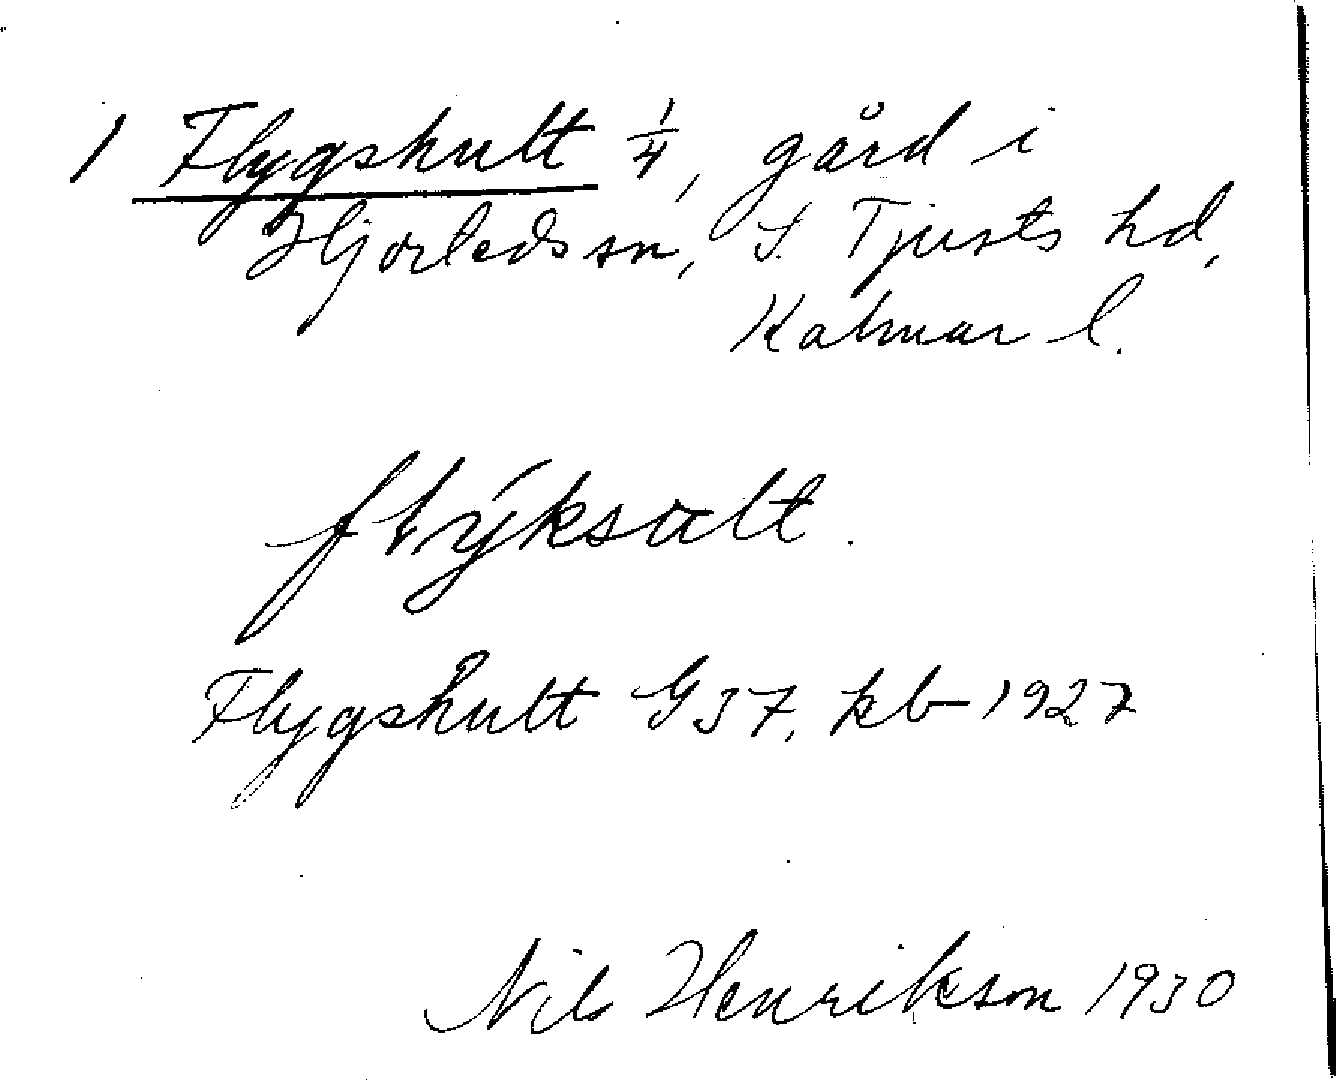 1 Flygshult 1/4, gård i
Hjorteds sn, S. Tjusts hd,
Kalmar l.
flýksult.
Flygshult GJ7, kb 1927
Nils Henrikson 1930